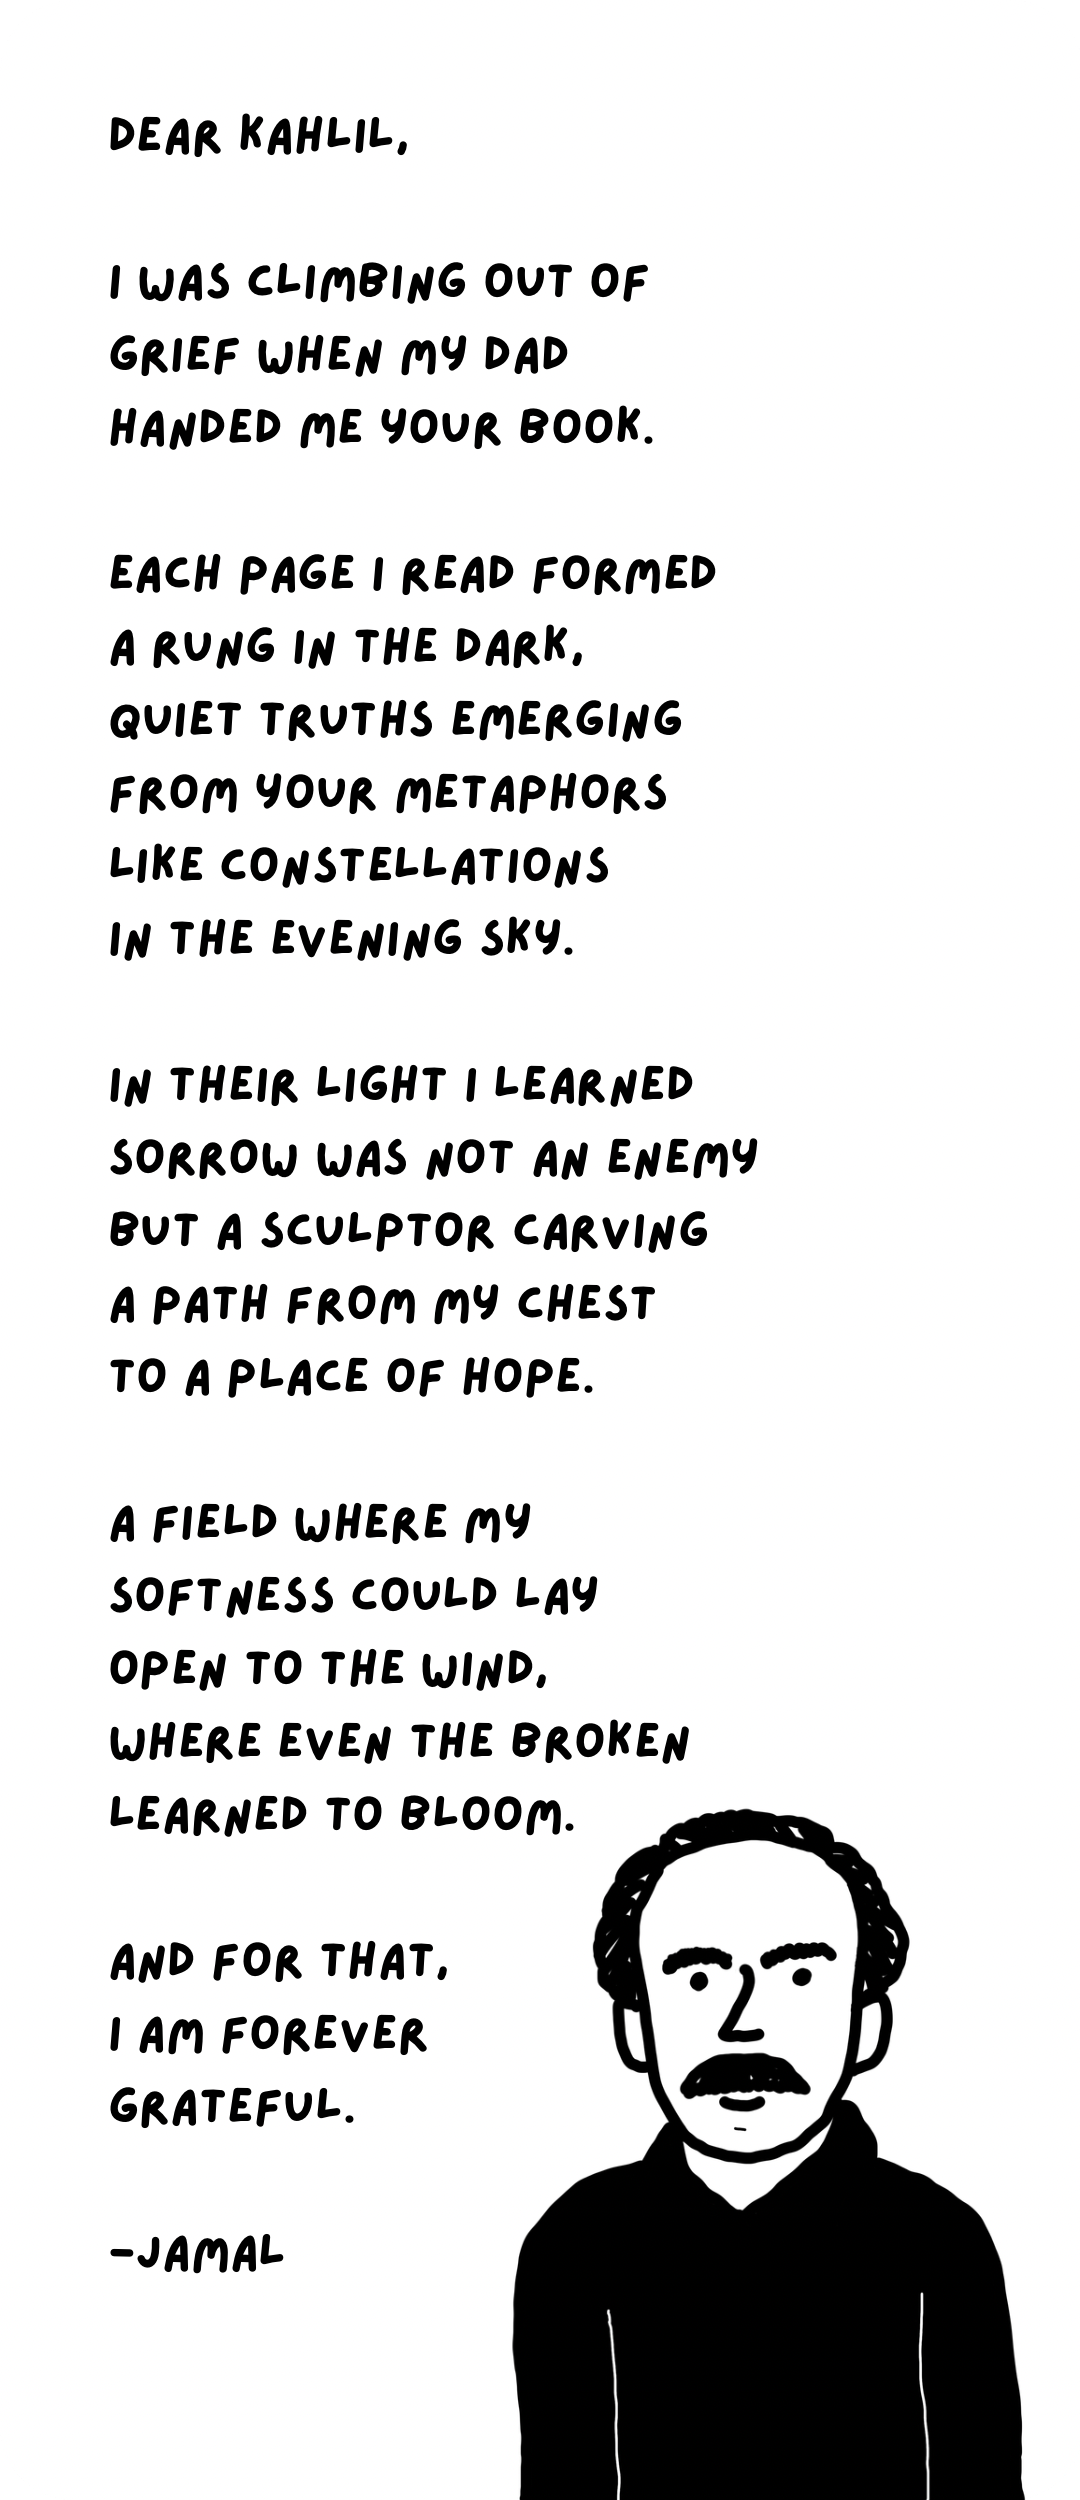 DEAR KAHLIL,
I WAS CLIMBING OUT OF
GRIEF WHEN MY DAD
HANDED ME YOUR BOOK.
EACH PAGE I READ FORMED
A RUNG IN THE DARK,
QUIET TRUTHS EMERGING
FROM YOUR METAPHORS
LIKE CONSTELLATIONS
IN THE EVENING SKY.
IN THEIR LIGHT I LEARNED
SORROW WAS NOT AN ENEMY
BUT A SCULPTOR CARVING
A PATH FROM MY CHEST
TO A PLACE OF HOPE.
A FIELD WHERE MY
SOFTNESS COULD LAY
OPEN TO THE WIND,
WHERE EVEN THE BROKEN
LEARNED TO BLOOM.
AND FOR THAT,
I AM FOREVER
GRATEFUL.
-JAMAL